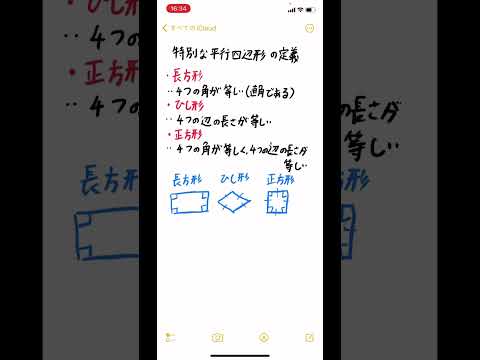 16:34
すべてのiCloud
特別な平行四辺形の定義
・長方形
‥4つの角が等しい(直角である)
・ひし形
‥4つの辺の長さが等しい
・正方形
‥4つの角が等しく、4つの辺の長さが
等しい
長方形 ひし形 正方形